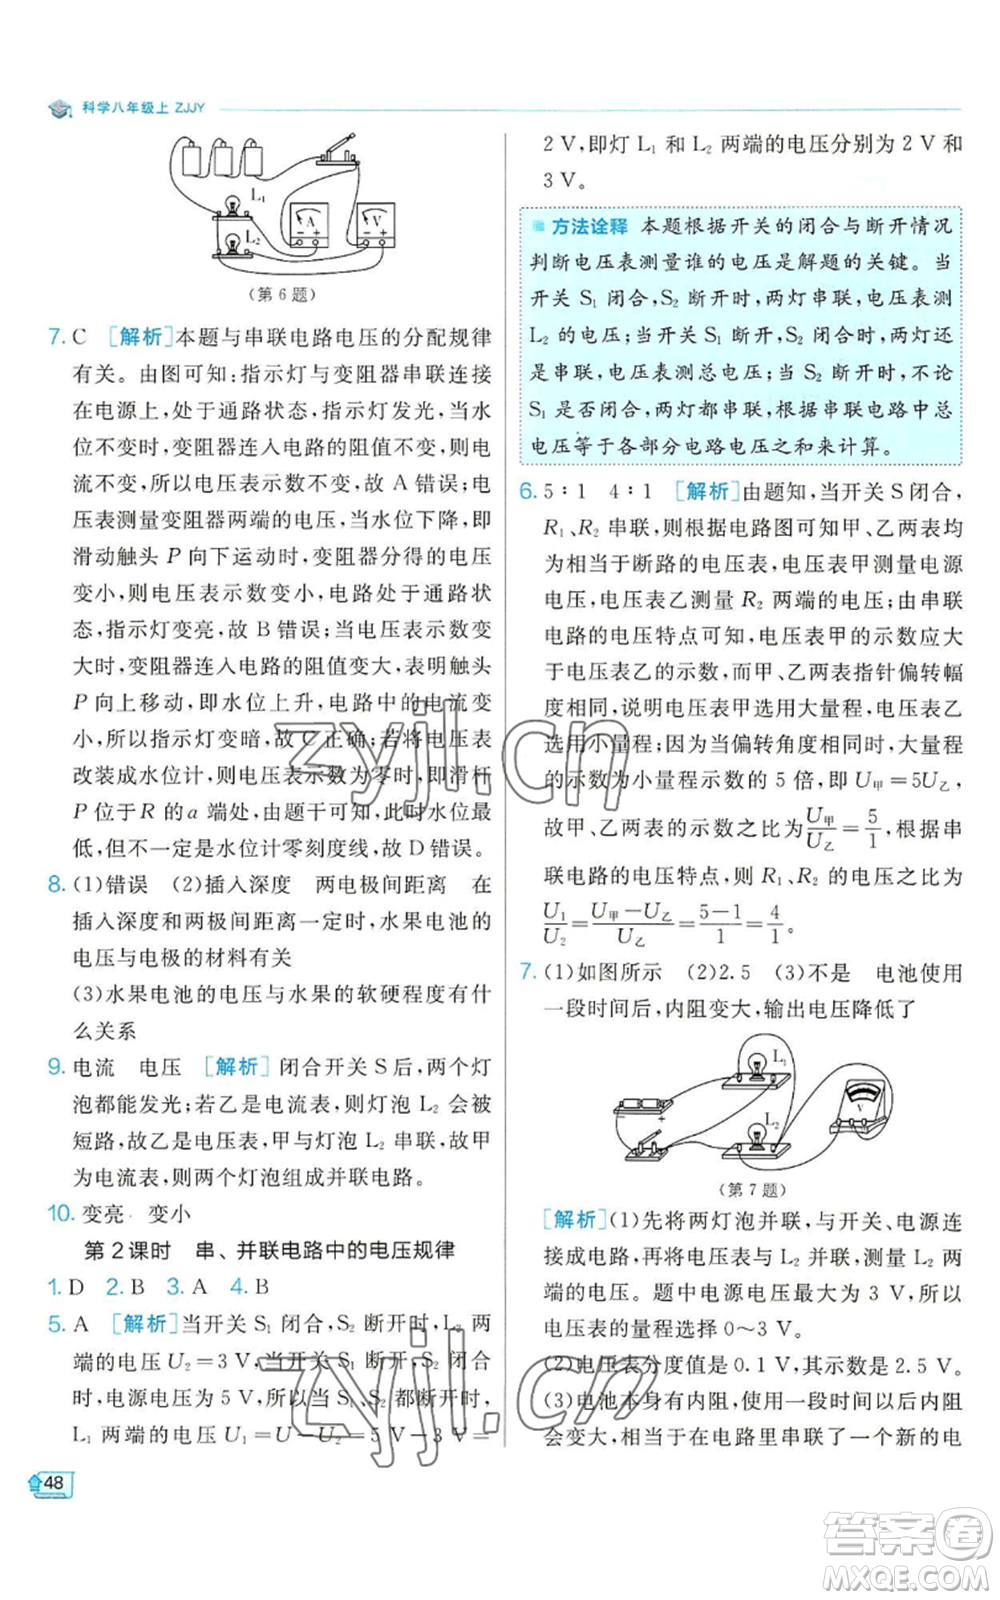 科学八年级上 ZJJY
L₁
L₂
A
V
(第 6 题)
7. C [解析]本题与串联电路电压的分配规律
有关。由图可知:指示灯与变阻器串联连接
在电源上,处于通路状态,指示灯发光,当水
位不变时,变阻器连入电路的阻值不变,则
电流不变,所以电压表示数不变,故 A 错误;电
压表测量变阻器两端的电压,当水位下降,即
滑动触头 P 向下运动时,变阻器分得的电压
变小,则电压表示数变小,电路处于通路状
态,指示灯变亮,故 B 错误;当电压表示数变
大时,变阻器连入电路的阻值变大,表明触头
P 向上移动,即水位上升,电路中的电流变
小,所以指示灯变暗,故 C 正确;若将电压表
改装成水位计,则电压表示数为零时,即滑杆
P 位于 R 的 a 端处,由题干可知,此时水位最
低,但不一定是水位计零刻度线,故 D 错误。
8. (1)错误 (2)插入深度 两电极间距离 在
插入深度和两极间距离一定时,水果电池的
电压与电极的材料有关
(3)水果电池的电压与水果的软硬程度有什
么关系
9. 电流 电压 [解析]闭合开关 S 后,两个灯
泡都能发光;若乙是电流表,则灯泡 L₂ 会被
短路,故乙是电压表,甲与灯泡 L₂ 串联,故甲
为电流表,则两个灯泡组成并联电路。
10. 变亮 变小
第 2 课时 串、并联电路中的电压规律
1. D 2. B 3. A 4. B
5. A [解析]当开关 S₁ 闭合,S₂ 断开时,L₂ 两
端的电压 U₂=3 V,当开关 S₁ 断开,S₂ 闭合
时,电源电压为 5 V,所以当 S₁、S₂ 都断开时,
L₁ 两端的电压 U₁=U-U₂=5 V-3 V=
48
2 V,即灯 L₁ 和 L₂ 两端的电压分别为 2 V 和
3 V。
方法诠释 本题根据开关的闭合与断开情况
判断电压表测量谁的电压是解题的关键。当
开关 S₁ 闭合,S₂ 断开时,两灯串联,电压表测
L₂ 的电压;当开关 S₁ 断开,S₂ 闭合时,两灯还
是串联,电压表测总电压;当 S₂ 断开时,不论
S₁ 是否闭合,两灯都串联,根据串联电路中总
电压等于各部分电路电压之和来计算。
6. 5∶1 4∶1 [解析]由题知,当开关 S 闭合,
R₁、R₂ 串联,则根据电路图可知甲、乙两表均
为相当于断路的电压表,电压表甲测量电源
电压,电压表乙测量 R₂ 两端的电压;由串联
电路的电压特点可知,电压表甲的示数应大
于电压表乙的示数,而甲、乙两表指针偏转幅
度相同,说明电压表甲选用大量程,电压表乙
选用小量程;因为当偏转角度相同时,大量程
的示数为小量程示数的 5 倍,即 U甲=5U乙,
故甲、乙两表的示数之比为U甲/U乙=5/1,根据串
联电路的电压特点,则 R₁、R₂ 的电压之比为
U₁/U₂=(U甲-U乙)/U乙=(5-1)/1=4/1。
7. (1)如图所示 (2)2.5 (3)不是 电池使用
一段时间后,内阻变大,输出电压降低了
L₁
L₂
V
(第 7 题)
[解析](1)先将两灯泡并联,与开关、电源连
接成电路;再将电压表与 L₂ 并联,测量 L₂ 两
端的电压。题中电源电压最大为 3 V,所以
电压表的量程选择 0～3 V。
(2)电压表分度值是 0.1 V,其示数是 2.5 V。
(3)电池本身有内阻,使用一段时间以后内阻
会变大,相当于在电路里串联了一个新的电
zyjl.cn
zyjl.cn
答案卷
MXQE.COM